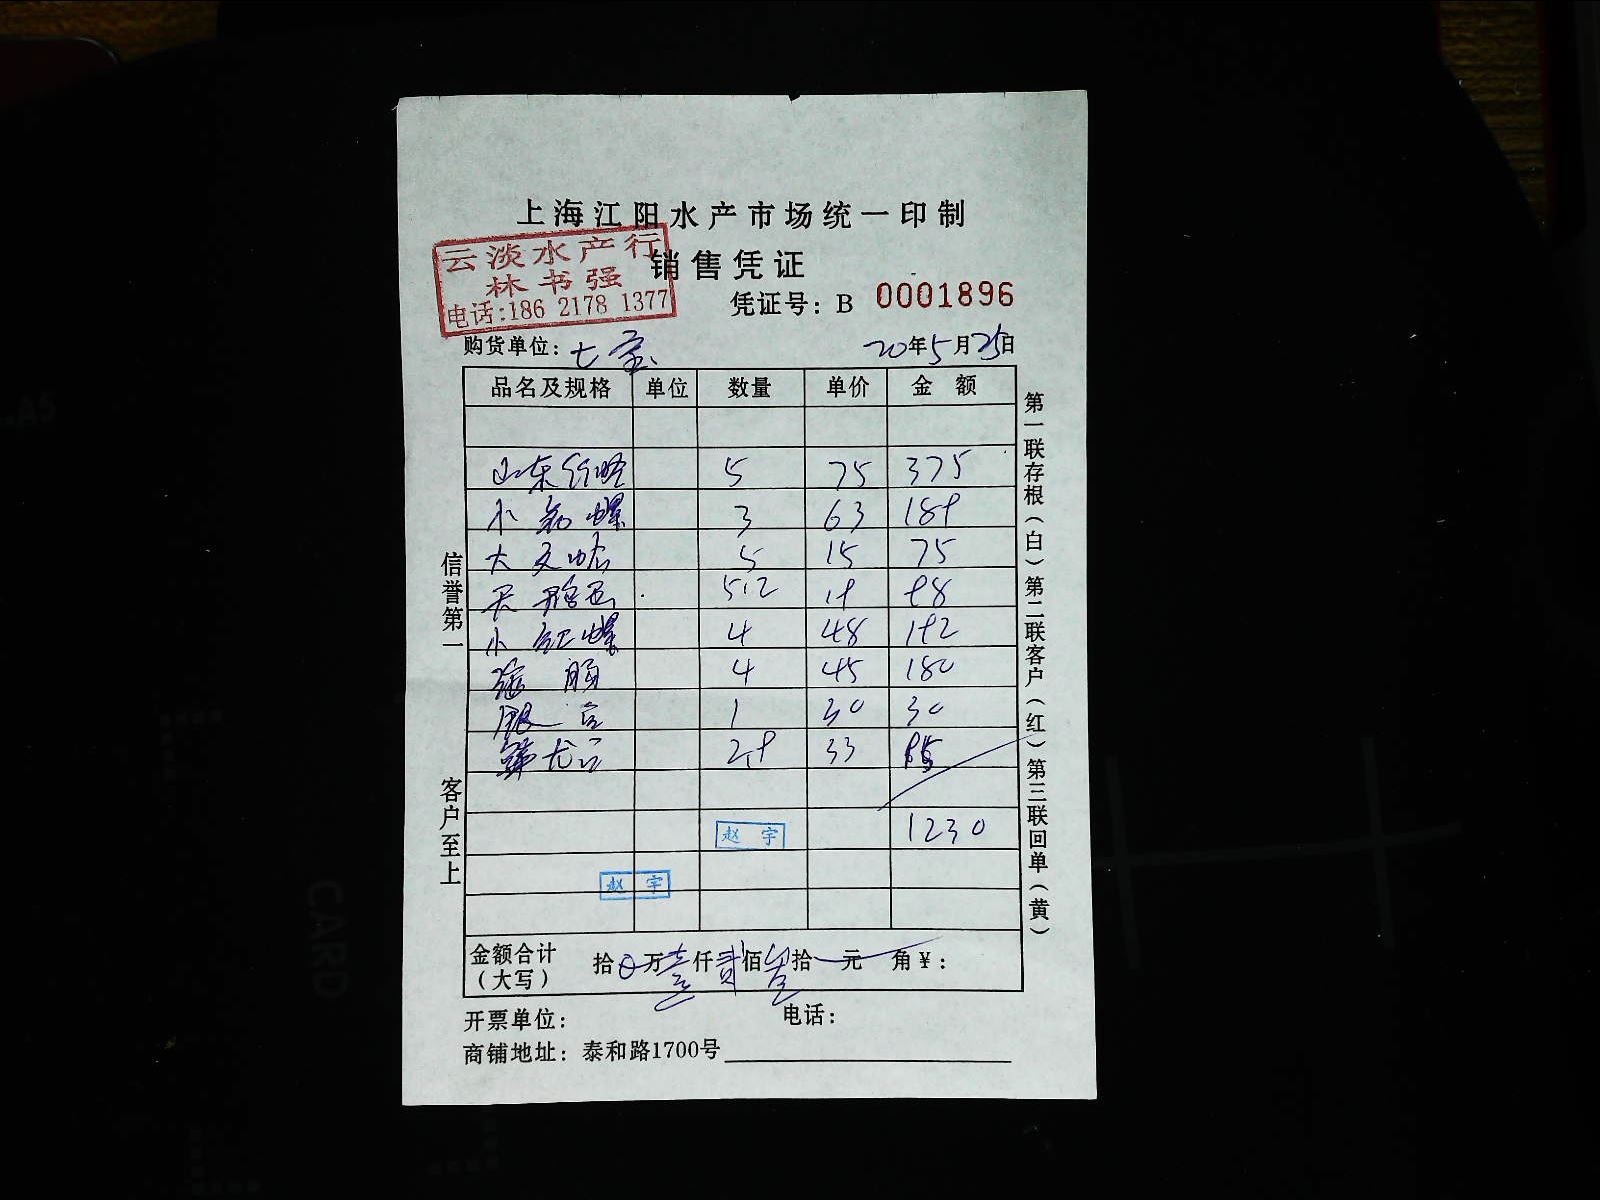 上海江阳水产市场统一印制
云淡水产行
林书强
电话:186 2178 1377
销售凭证
凭证号: B 0001896
购货单位: 七宝
20年5月25日
品名及规格 单位 数量 单价 金额
山东 5 75 375
小 螺 3 63 189
大文蛤 5 15 75
5.2 19 98
小红螺 4 48 192
海肠 4 45 180
1 30 30
2.9 33
1230
赵宇
赵宇
金额合计(大写) 拾0万壹仟贰佰叁拾元角¥:
开票单位: 电话:
商铺地址: 泰和路1700号
信誉第一 客户至上
第一联存根(白)第二联客户(红)第三联回单(黄)